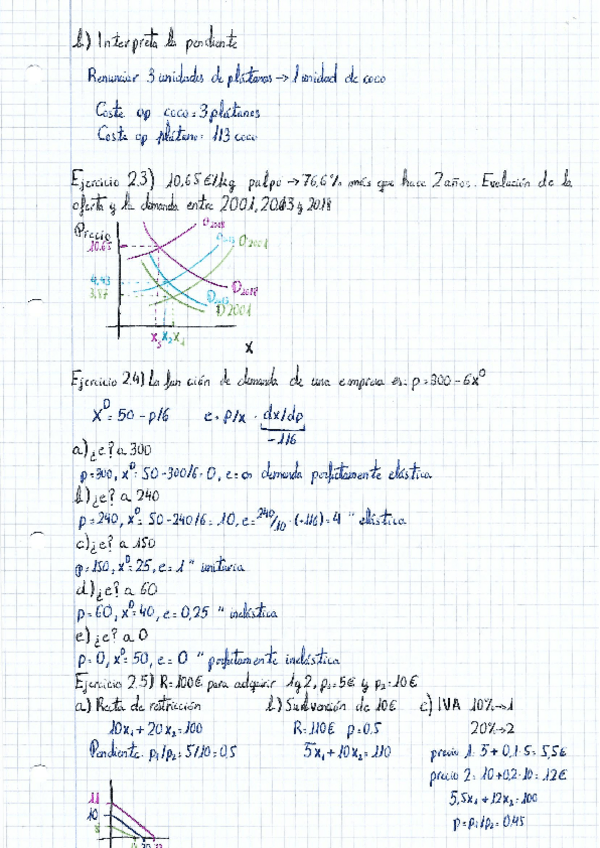 b) Interpreta la pendiente
Renunciar 3 unidades de plátanos → 1 unidad de coco
Coste op coco = 3 plátanos
Coste op plátano = 1/3 coco
Ejercicio 2.3) 10,65 €/kg pulpo → 76,6% más que hace 2 años. Evolución de la
oferta y la demanda entre 2001, 2013 y 2018
Precio
O2018
O2013
O2001
10,65
4,43
3,87
D2018
D2013
D2001
X3 X2 X1
X
Ejercicio 2.4) La función de demanda de una empresa es: p = 300 - 6x^D
X^D = 50 - p/6 e = p/x · dx/dp
-1/6
a) ¿e? a 300
p=300, x^D = 50 - 300/6 = 0, e = ∞ demanda perfectamente elástica
b) ¿e? a 240
p = 240, x^D = 50 - 240/6 = 10, e = 240/10 · (-1/6) = 4 " elástica
c) ¿e? a 150
p=150, x^D = 25, e = 1 " unitaria
d) ¿e? a 60
p=60, x^D = 40, e = 0,25 " inelástica
e) ¿e? a 0
p=0, x^D = 50, e = 0 " perfectamente inelástica
Ejercicio 2.5) R = 100€ para adquirir 1 y 2, p1 = 5€ y p2 = 10€
a) Recta de restricción b) Subvención de 10€ c) IVA 10% → 1
10x1 + 20x2 = 100 R = 110€ p = 0,5 20% → 2
Pendiente: p1/p2 = 5/10 = 0,5 5x1 + 10x2 = 110 precio 1: 5 + 0,1·5 = 5,5€
precio 2: 10 + 0,2·10 = 12€
5,5x1 + 12x2 = 100
p = p1/p2 = 0,45
11
10